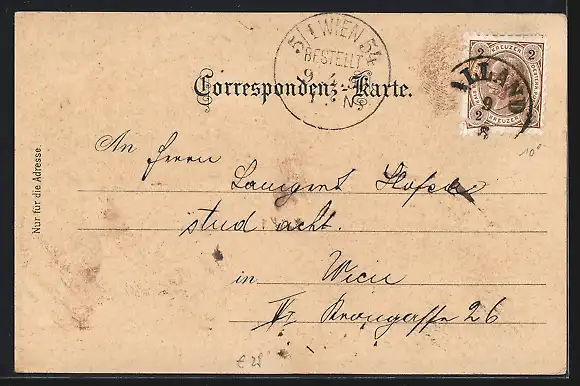 5/1 WIEN 54
BESTELLT
9. 4
1. N
Correspondenz-Karte.
2 KREUZER 2
2 KREUZER 2
ALLAND
9
An Herrn
Hofer
stud acht.
in Wien
26
10°
€ 28
Nur für die Adresse.